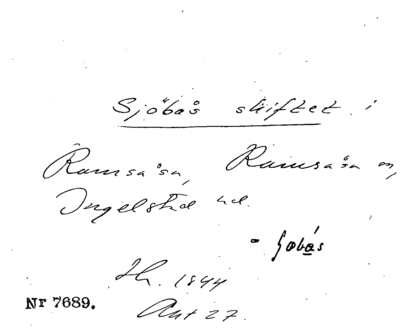 Sjöbås skiftet i
Ramsåsa, Ramsåsa sn,
Ingelstad hd.
- sobås
Sk. 1844
Akt 27.
Nr 7689.